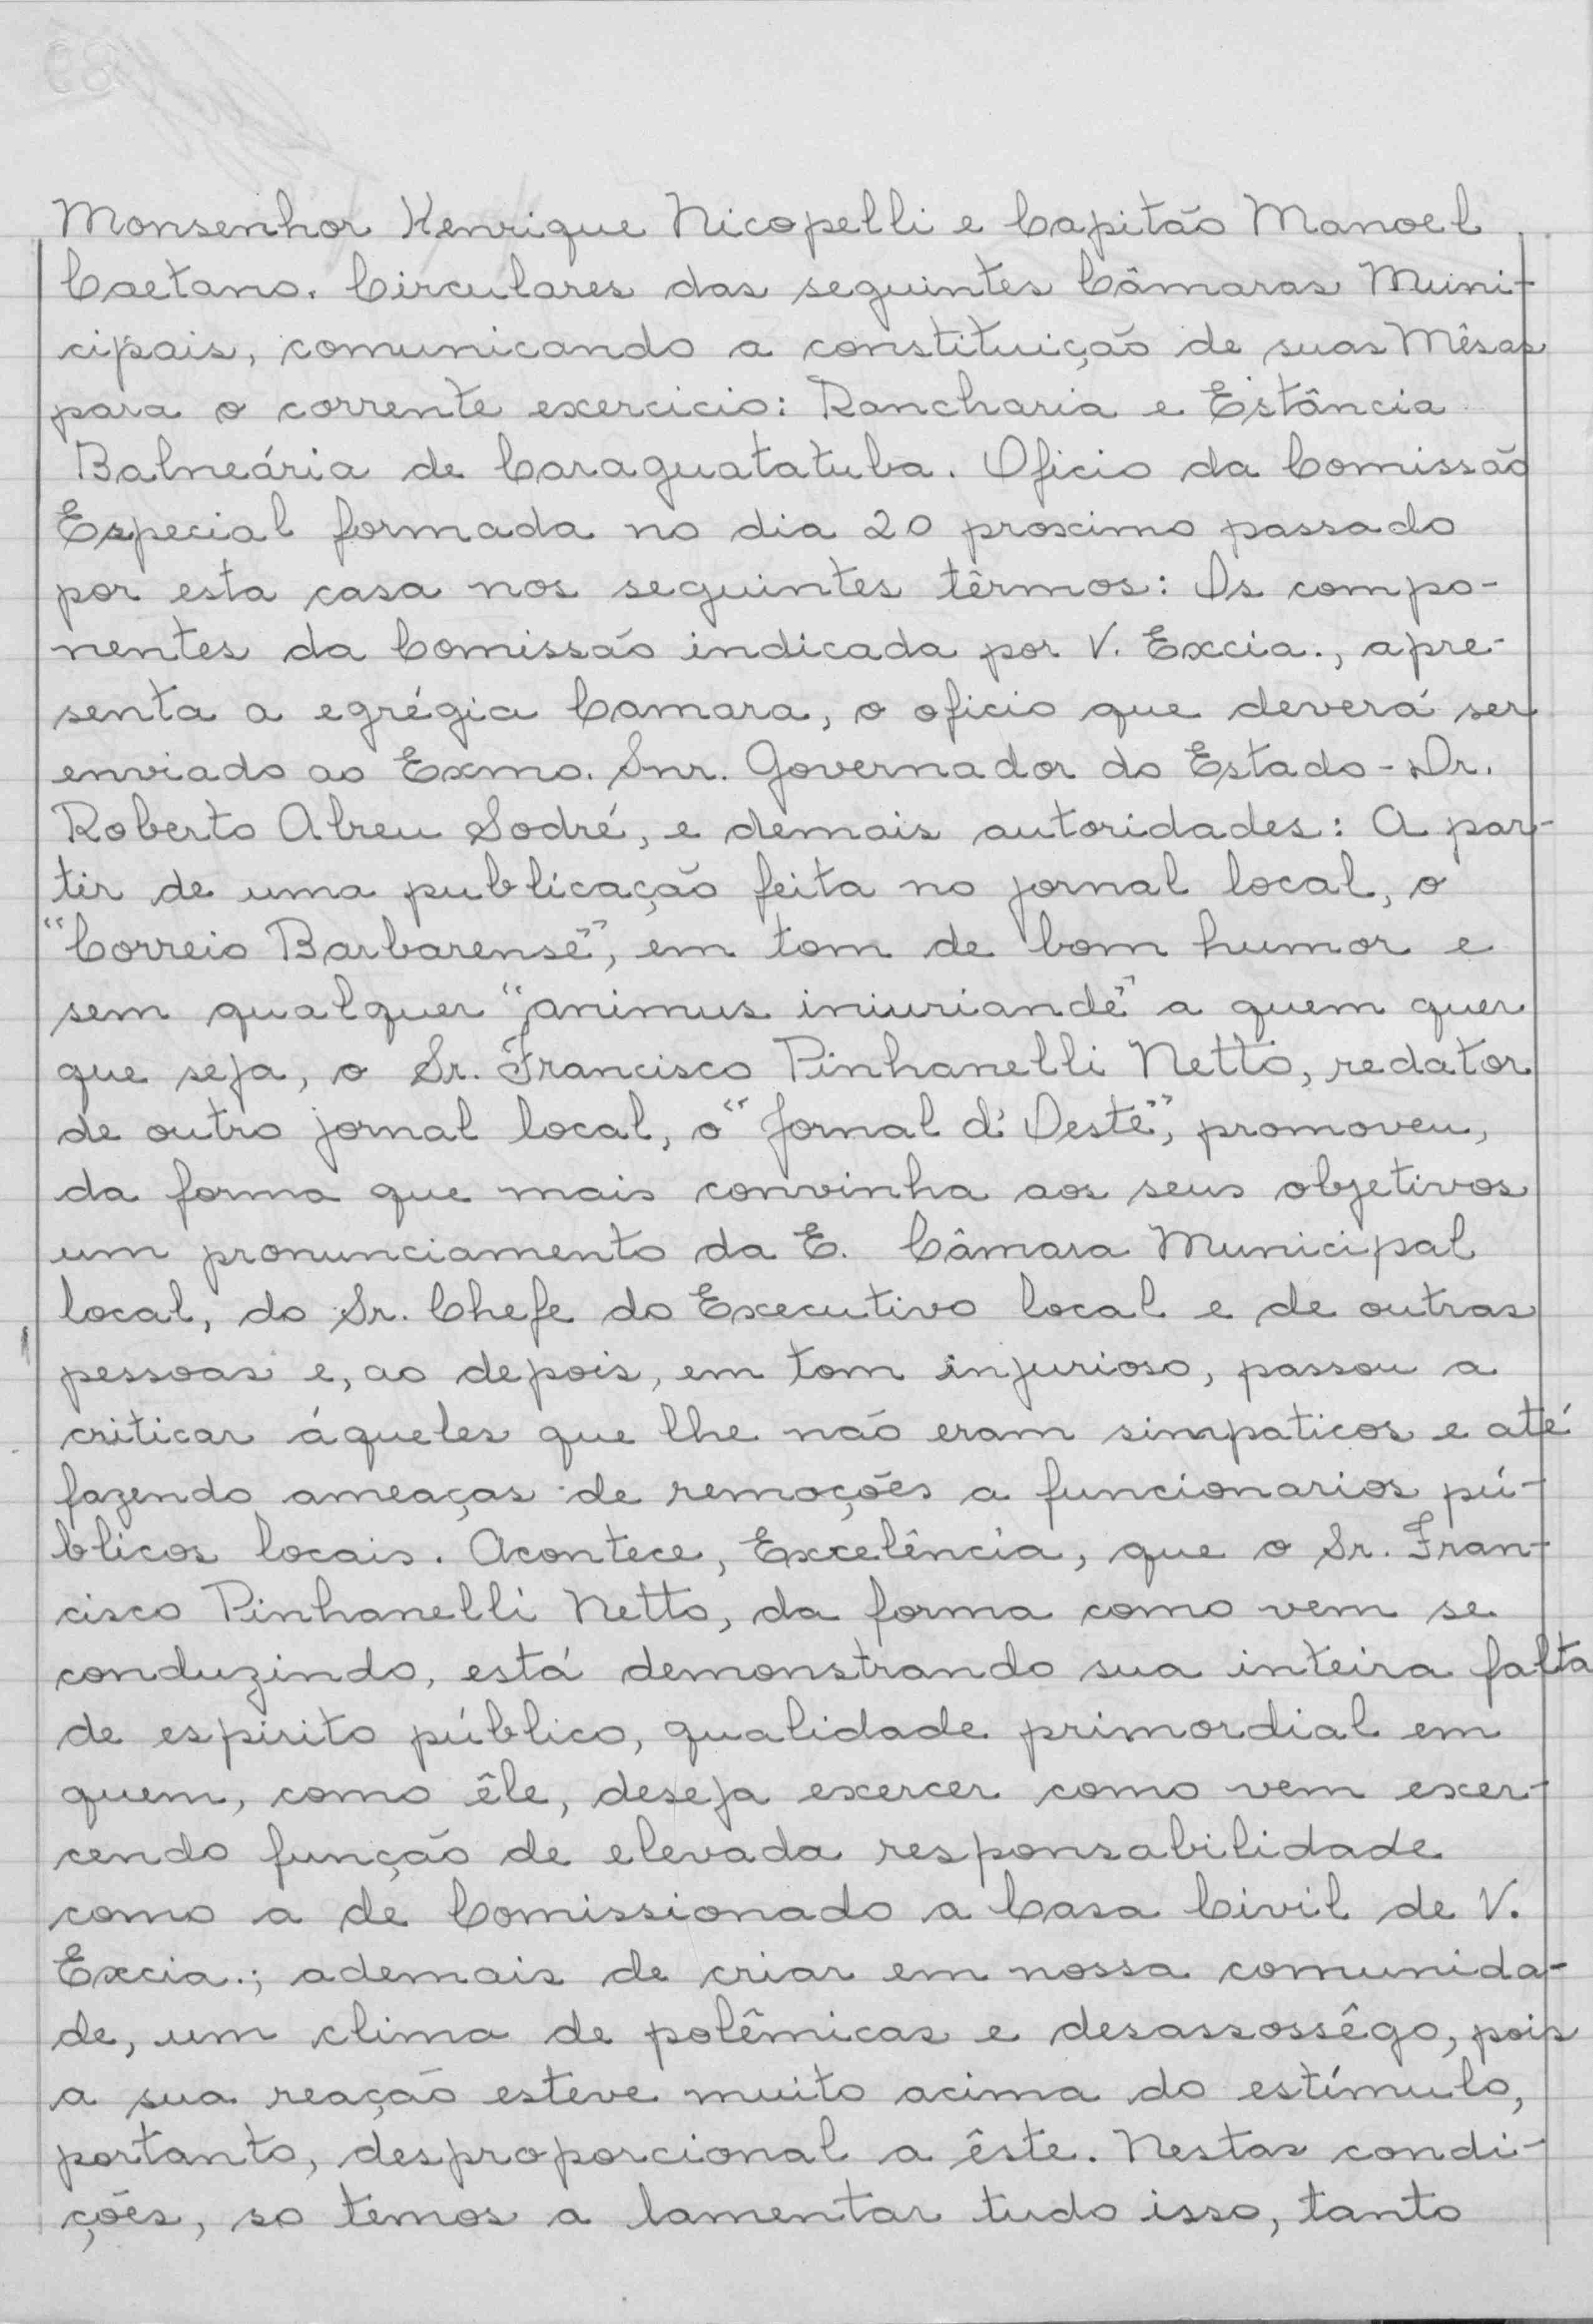 Monsenhor Henrique Nicopelli e Capitão Manoel
Caetano. Circulares das seguintes Câmaras Muni-
cipais, comunicando a constituição de suas Mêsas
para o corrente exercicio: Rancharia e Estância
Balneária de Caraguatatuba. Oficio da Comissão
Especial formada no dia 20 proximo passado
por esta casa nos seguintes têrmos: Os compo-
nentes da Comissão indicada por V. Excia., apre-
senta a egrégia Camara, o oficio que deverá ser
enviado ao Exmo. Snr. Governador do Estado - Dr.
Roberto Abreu Sodré, e demais autoridades: A par-
tir de uma publicação feita no jornal local, o
"Correio Barbarense", em tom de bom humor e
sem qualquer "animus iniuriande" a quem quer
que seja, o Sr. Francisco Pinhanelli Netto, redator
de outro jornal local, o "Jornal d'Oeste", promoveu,
da forma que mais convinha aos seus objetivos
um pronunciamento da E. Câmara Municipal
local, do Sr. Chefe do Executivo local e de outras
pessoas e, ao depois, em tom injurioso, passou a
criticar áqueles que lhe não eram simpaticos e até
fazendo ameaças de remoções a funcionarios pú-
blicos locais. Acontece, Excelência, que o Sr. Fran-
cisco Pinhanelli Netto, da forma como vem se
conduzindo, está demonstrando sua inteira falta
de espirito público, qualidade primordial em
quem, como êle, deseja exercer como vem exer-
cendo função de elevada responsabilidade
como a de Comissionado a Casa Civil de V.
Excia.; ademais de criar em nossa comunida-
de, um clima de polêmicas e desassossêgo, pois
a sua reação esteve muito acima do estímulo,
portanto, desproporcional a êste. Nestas condi-
ções, so temos a lamentar tudo isso, tanto